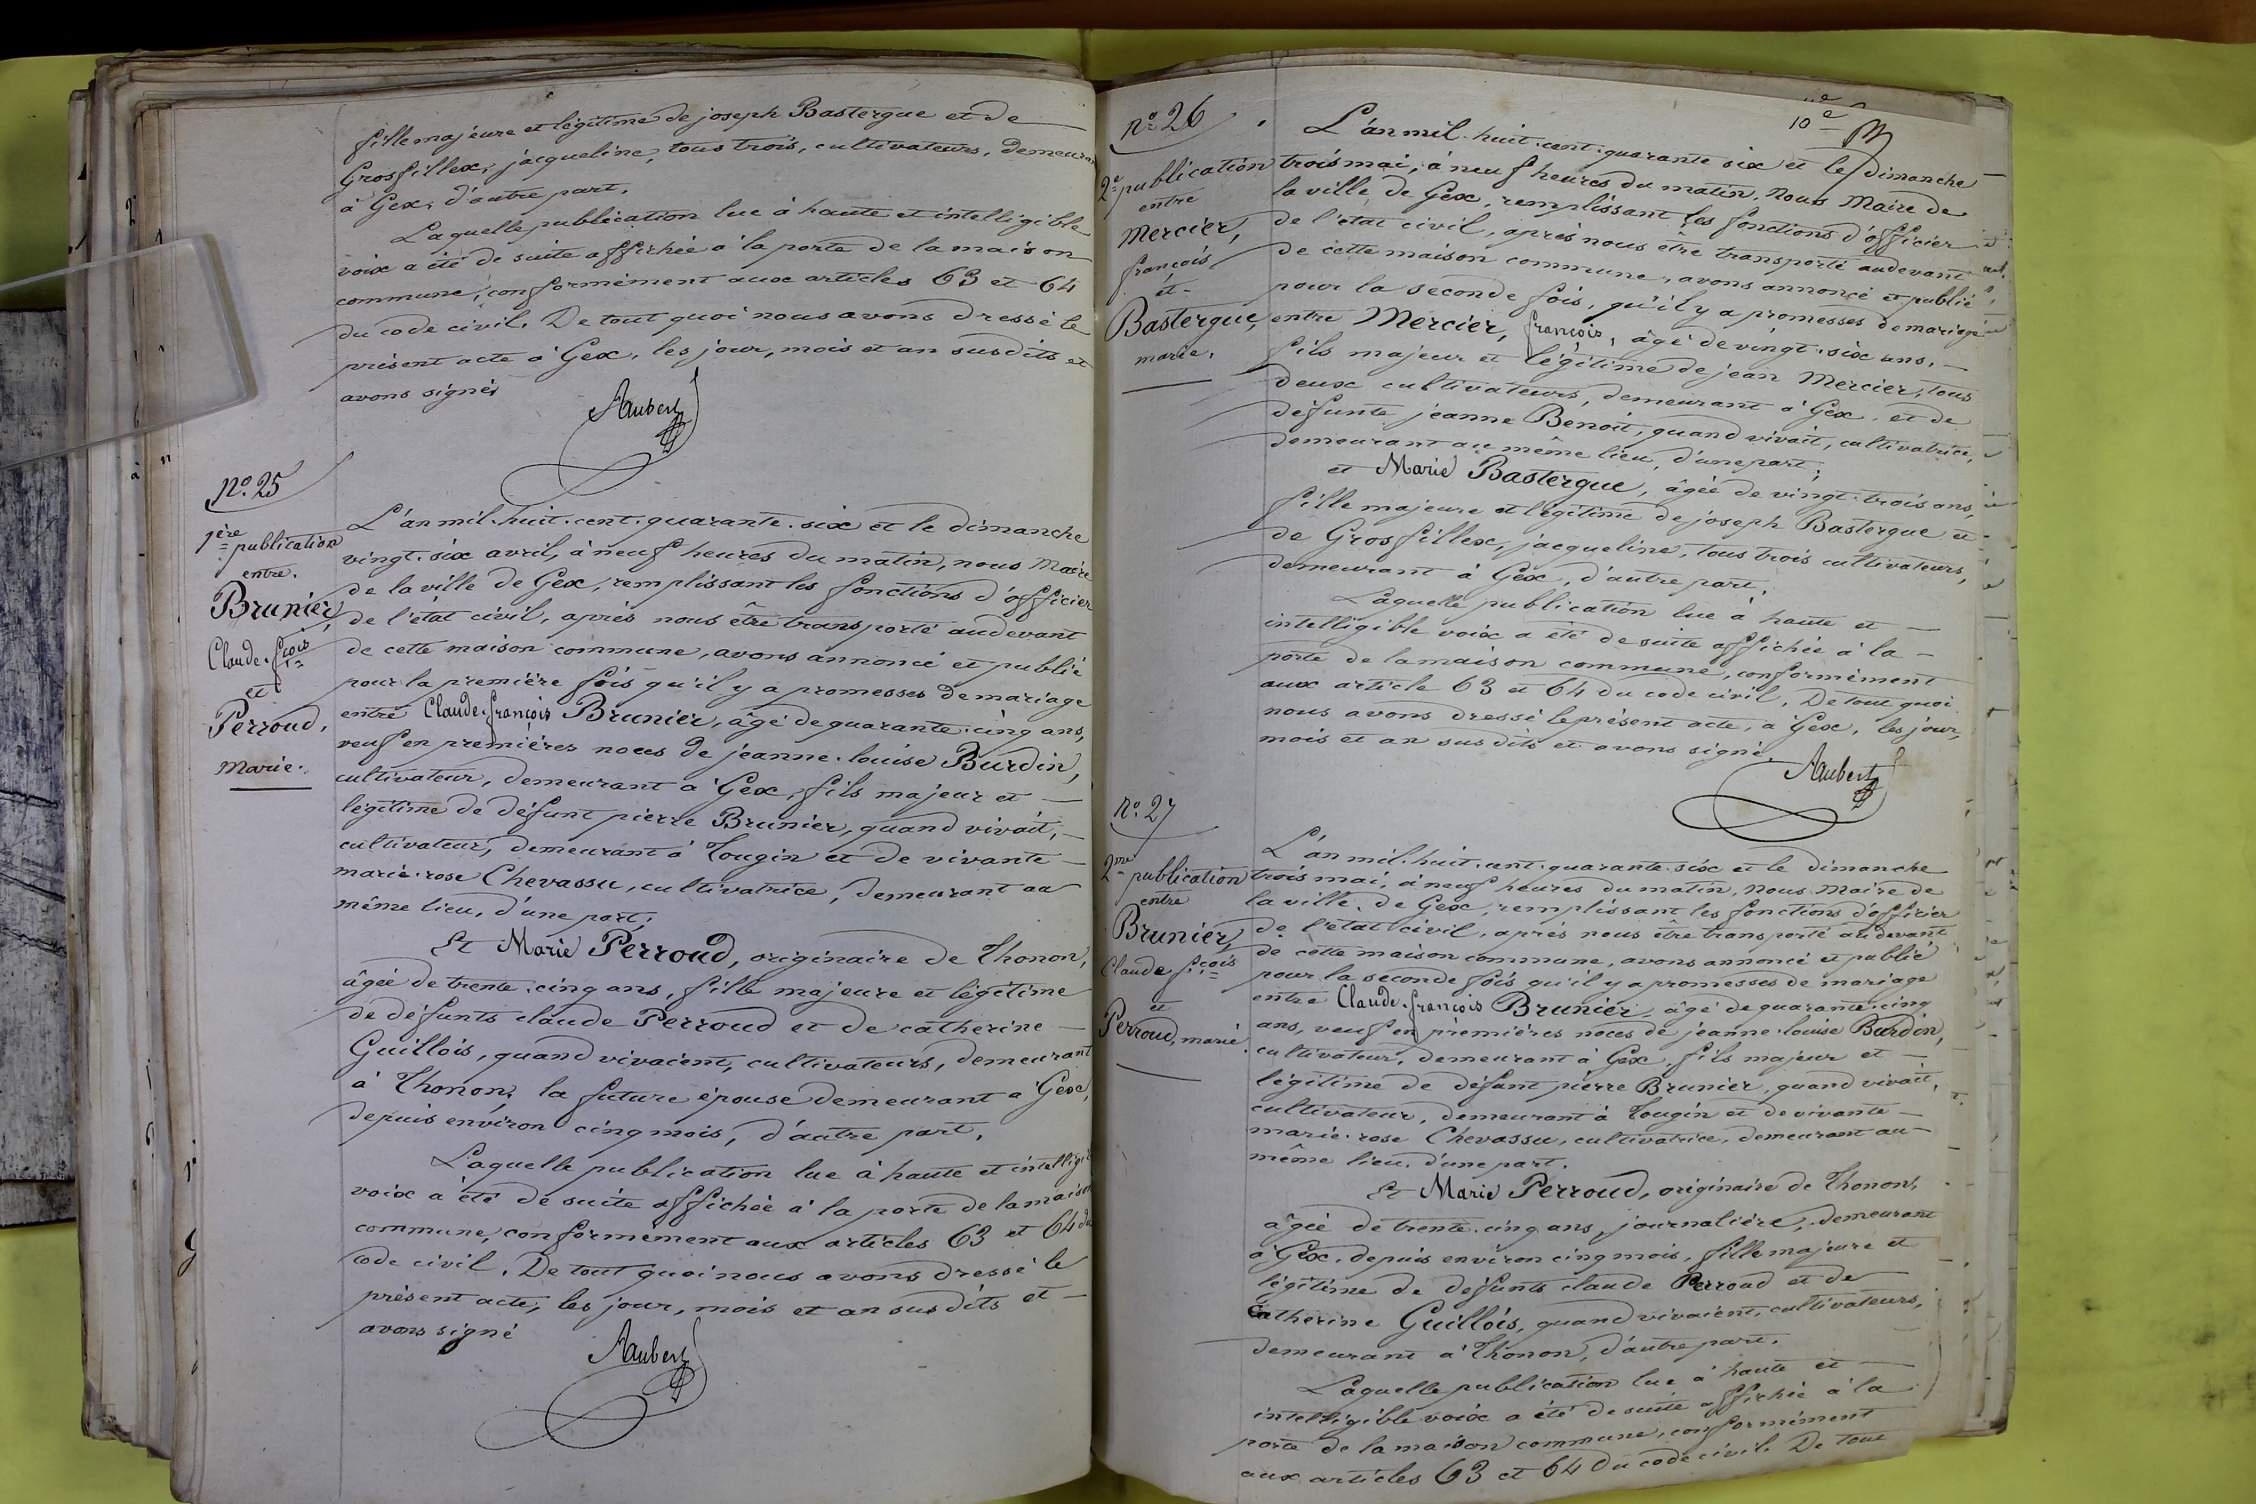 fille majeure et légitime de joseph Bastergue et de
Grosfillex, jacqueline, tous trois, cultivateurs, demeurant
à Gex, d'autre part.
Laquelle publication lue à haute et intelligible
voix a été de suite affichée à la porte de la maison
commune, conformément aux articles 63 et 64
du code civil. De tout quoi nous avons dressé le
présent acte à Gex, les jour, mois et an susdits et
avons signé
Aubert
n.º 25
1ère publication
entre.
Brunier,
Claude-fçois
et
Perroud,
marie.
L'an mil-huit-cent-quarante-six et le dimanche
vingt-six avril, à neuf heures du matin, nous Maire
de la ville de Gex, remplissant les fonctions d'officier
de l'état civil, après nous être transporté audevant
de cette maison commune, avons annoncé et publié
pour la première fois qu'il y a promesses de mariage
entre Claude-françois Brunier, âgé de quarante-cinq ans,
veuf en premières noces de jeanne-louise Burdin,
cultivateur, demeurant à Gex, fils majeur et —
légitime de défunt pierre Brunier, quand vivait, —
cultivateur, demeurant à Tougin et de vivante —
marie-rose Chevassu, cultivatrice, demeurant au
même lieu, d'une part;
Et Marie Perroud, originaire de Thonon,
âgée de trente-cinq ans, fille majeure et légitime
de défunts claude Perroud et de catherine —
Guillois, quand vivaient, cultivateurs, demeurant
à Thonon, la future épouse demeurant à Gex,
depuis environ cinq mois, d'autre part.
Laquelle publication lue à haute et intelligi
voix a été de suite affichée à la porte de la maison
commune, conformément aux articles 63 et 64 du
code civil. De tout quoi nous avons dressé le
présent acte, les jour, mois et an susdits et —
avons signé
Aubert
10e
n.º 26
2e publication
entre
Mercier,
françois
et
Bastergue,
marie.
L'an mil-huit-cent-quarante six et le dimanche
trois mai, à neuf heures du matin, Nous Maire de
la ville de Gex, remplissant les fonctions d'officier
de l'état civil, après nous être transporté audevant
de cette maison commune, avons annoncé et publié
pour la seconde fois, qu'il y a promesses de mariage
entre Mercier, françois, âgé de vingt-six ans, —
fils majeur et légitime de jean Mercier, tous
deux cultivateurs, demeurant à Gex, et de
défunte jeanne Benoit, quand vivait, cultivatrice,
demeurant au même lieu, d'une part;
et Marie Bastergue, âgée de vingt-trois ans,
fille majeure et légitime de joseph Bastergue et
de Grosfillex, jacqueline, tous trois cultivateurs,
demeurant à Gex, d'autre part.
Laquelle publication lue à haute et —
intelligible voix a été de suite affichée à la —
porte de la maison commune, conformément
aux article 63 et 64 du code civil. De tout quoi
nous avons dressé le présent acte, à Gex, les jour,
mois et an susdits et avons signé.
Aubert
n.º 27
2me publication
entre
Brunier,
Claude fçois
et
Perroud, marie
L'an mil-huit-cent-quarante-six et le dimanche
trois mai, à neuf heures du matin, nous Maire de
la ville de Gex, remplissant les fonctions d'officier
de l'état civil, après nous être transporté audevant
de cette maison commune, avons annoncé et publié
pour la seconde fois qu'il y a promesses de mariage
entre Claude-françois Brunier, âgé de quarante-cinq
ans, veuf en premières noces de jeanne-louise Burdin,
cultivateur, demeurant à Gex, fils majeur et —
légitime de défunt pierre Brunier, quand vivait,
cultivateur, demeurant à Tougin et de vivante —
marie-rose Chevassu, cultivatrice, demeurant au —
même lieu, d'une part.
Et Marie Perroud, originaire de Thonon,
âgée de trente-cinq ans, journalière, demeurant
à Gex, depuis environ cinq mois, fille majeure et
légitime de défunts claude Perroud et de
Catherine Guillois, quand vivaient, cultivateurs,
demeurant à Thonon, d'autre part.
Laquelle publication lue à haute et —
intelligible voix a été de suite affichée à la
porte de la maison commune, conformément
aux articles 63 et 64 du code civil. De tout